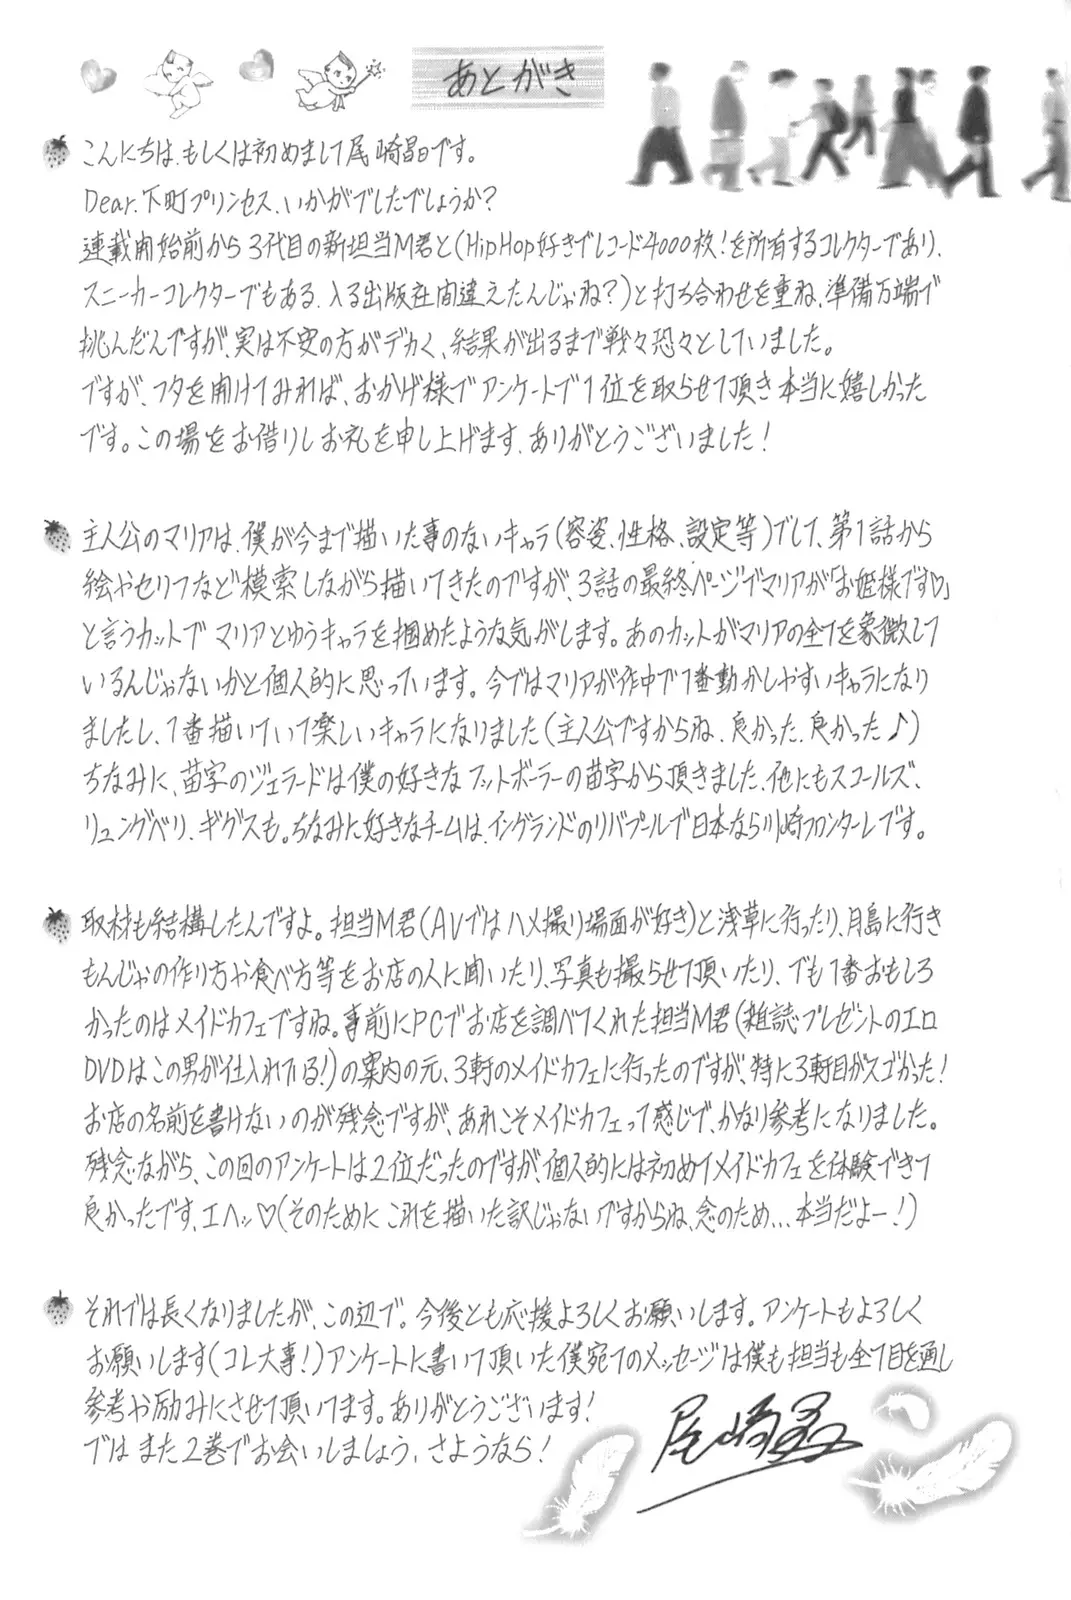 あとがき
こんにちは、もしくは初めまして尾崎晶です。
Dear.下町プリンセス、いかがでしたでしょうか?
連載開始前から3代目の新担当M君と(HipHop好きでレコード4000枚!を所有するコレクターであり、
スニーカーコレクターでもある、入る出版社間違えたんじゃね?)と打ち合わせを重ね、準備万端で
挑んだんですが、実は不安の方がデカく、結果が出るまで戦々恐々としていました。
ですが、フタを開けてみれば、おかげ様でアンケートで1位を取らせて頂き本当に嬉しかった
です。この場をお借りしお礼を申し上げます、ありがとうございました!
主人公のマリアは、僕が今まで描いた事のないキャラ(容姿、性格、設定等)でして、第1話から
絵やセリフなど模索しながら描いてきたのですが、3話の最終ページでマリアが「お姫様です♡」
と言うカットでマリアとゆうキャラを掴めたような気がします。あのカットがマリアの全てを象徴して
いるんじゃないかと個人的に思っています。今ではマリアが作中で1番動かしやすいキャラになり
ましたし、1番描いていて楽しいキャラになりました(主人公ですからね、良かった、良かった♪)
ちなみに、苗字のジェラードは僕の好きなフットボーラーの苗字から頂きました、他にもスコールズ、
リュングベリ、ギグスも。ちなみに好きなチームは、イングランドのリバプールで日本なら川崎フロンターレです。
取材も結構したんですよ。担当M君(AVではハメ撮り場面が好き)と浅草に行ったり、月島に行き
もんじゃの作り方や食べ方等をお店の人に聞いたり、写真も撮らせて頂いたり、でも1番おもしろ
かったのはメイドカフェですね。事前にPCでお店を調べてくれた担当M君(雑誌プレゼントのエロ
DVDはこの男が仕入れている!)の案内の元、3軒のメイドカフェに行ったのですが、特に3軒目がスゴかった!
お店の名前を書けないのが残念ですが、あれこそメイドカフェって感じで、かなり参考になりました。
残念ながら、この回のアンケートは2位だったのですが、個人的には初めてメイドカフェを体験できて
良かったです、エヘッ♡(そのためにこれを描いた訳じゃないですからね、念のため...本当だよー!)
それでは長くなりましたが、この辺で。今後とも応援よろしくお願いします。アンケートもよろしく
お願いします(コレ大事!)アンケートに書いて頂いた僕宛てのメッセージは僕も担当も全て目を通し
参考や励みにさせて頂いてます。ありがとうございます!
ではまた2巻でお会いしましょう、さようなら!
尾崎晶